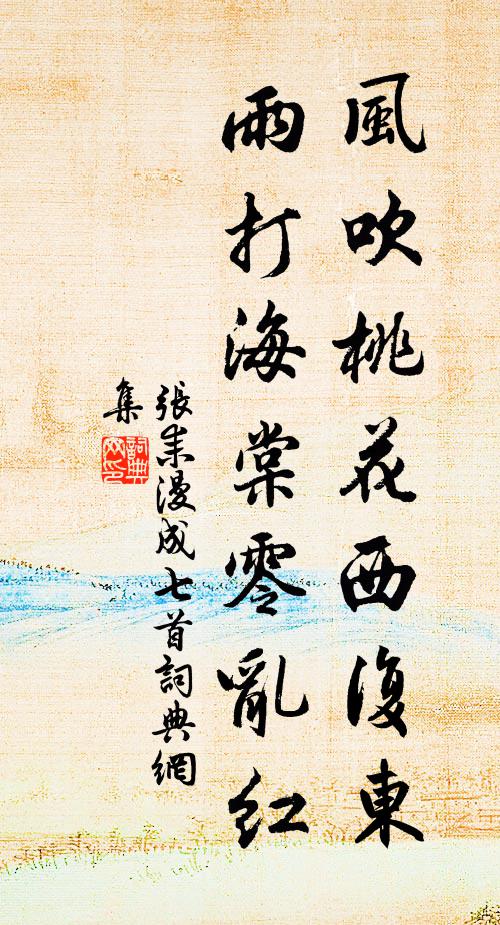 風吹桃花西復東
雨打海棠零亂紅
張耒漫成七首詞典網
集
詞典
网印